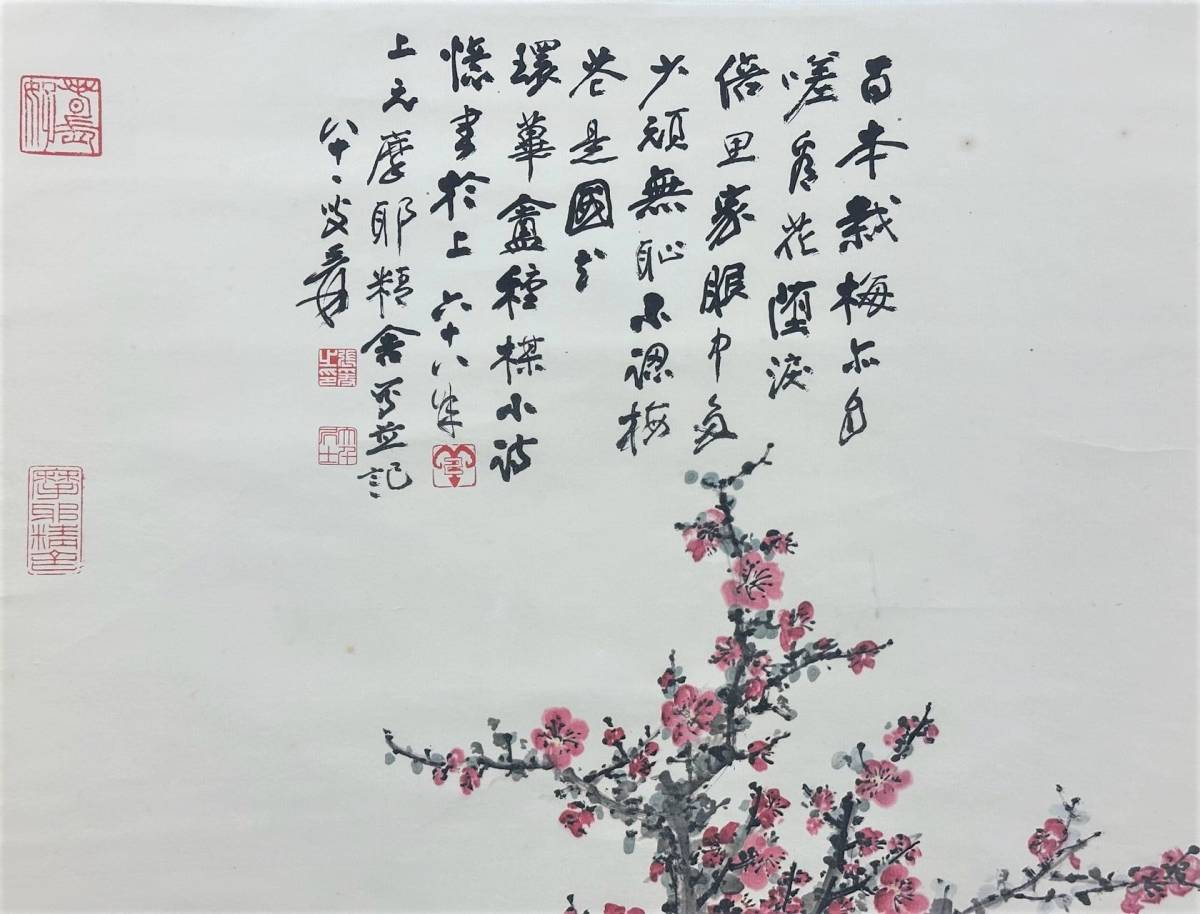 百本栽梅亦自
嗟看花墮淚
倍思家眼中多
少頑無恥不認梅
花是國花
環蓽盦種楳小詩
憶書於上 六十八年
上元摩耶精舍寫並記
八十一叟爰
張爰之印
大千居士
摩耶精舍